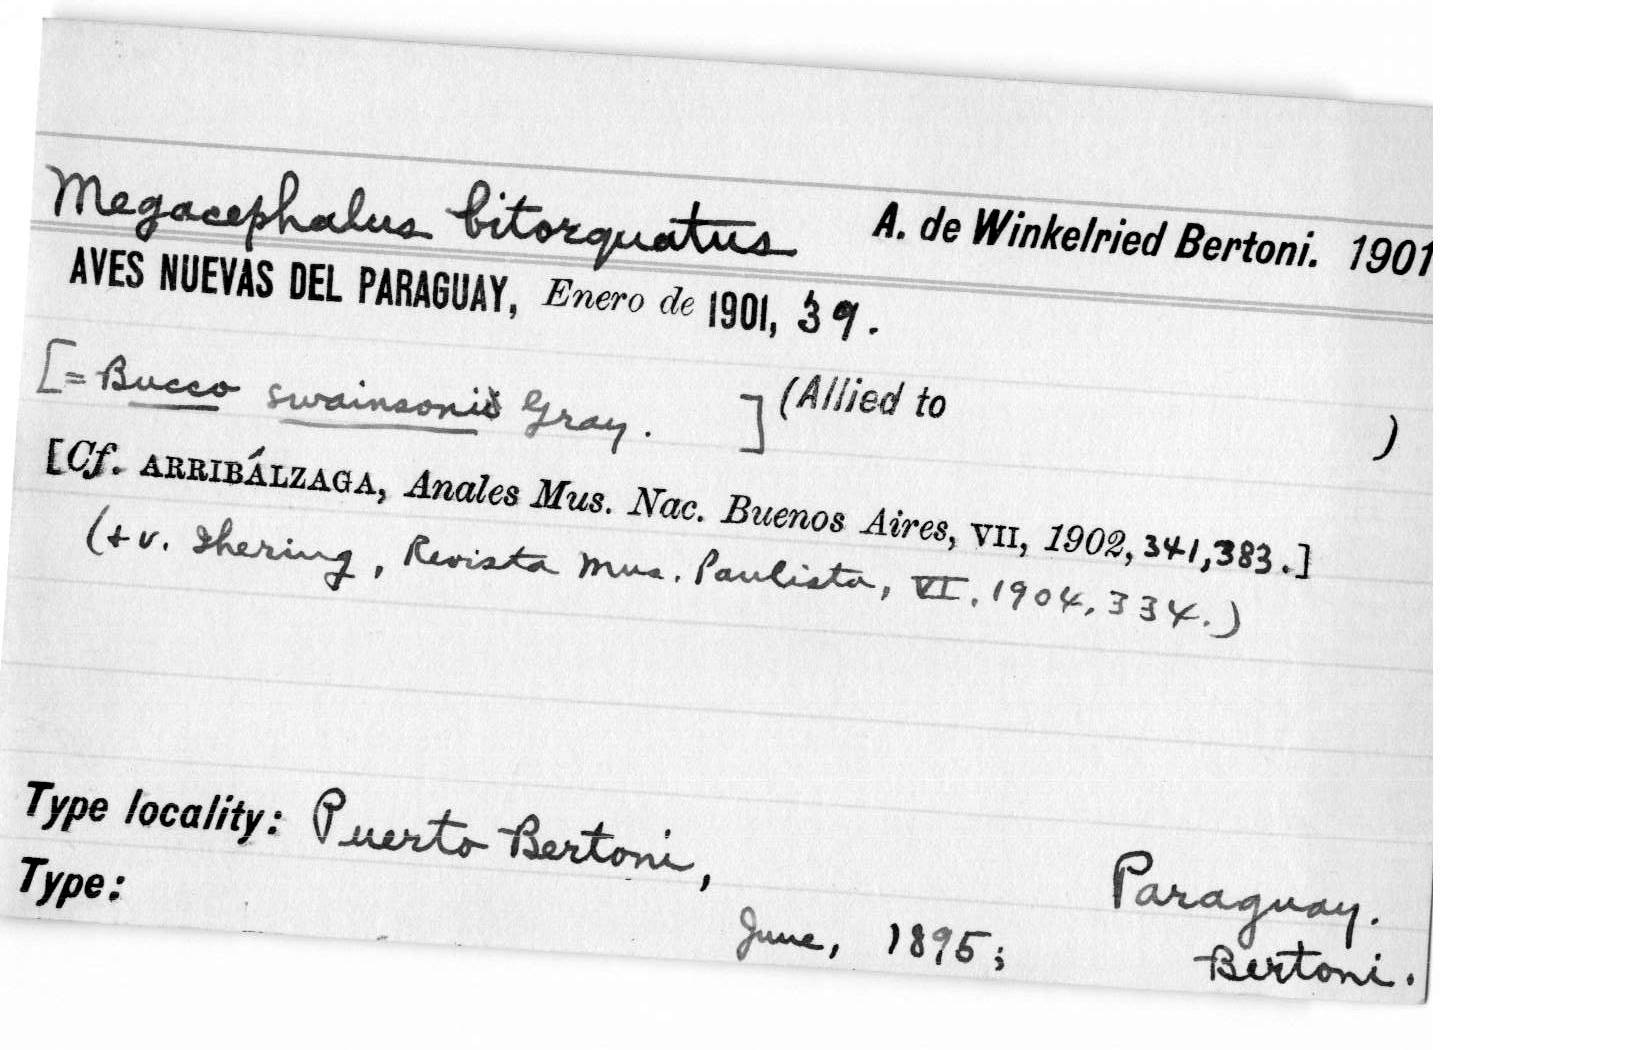 Megacephalus bitorquatus A. de Winkelried Bertoni. 1901
AVES NUEVAS DEL PARAGUAY, Enero de 1901, 39.
[= Bucco swainsoni Gray. ] (Allied to )
[Cf. ARRIBÁLZAGA, Anales Mus. Nac. Buenos Aires, VII, 1902, 341, 383.]
(+ v. Ihering, Revista Mus. Paulista, VI, 1904, 334.)
Type locality: Puerto Bertoni, Paraguay.
Type: June, 1895; Bertoni.